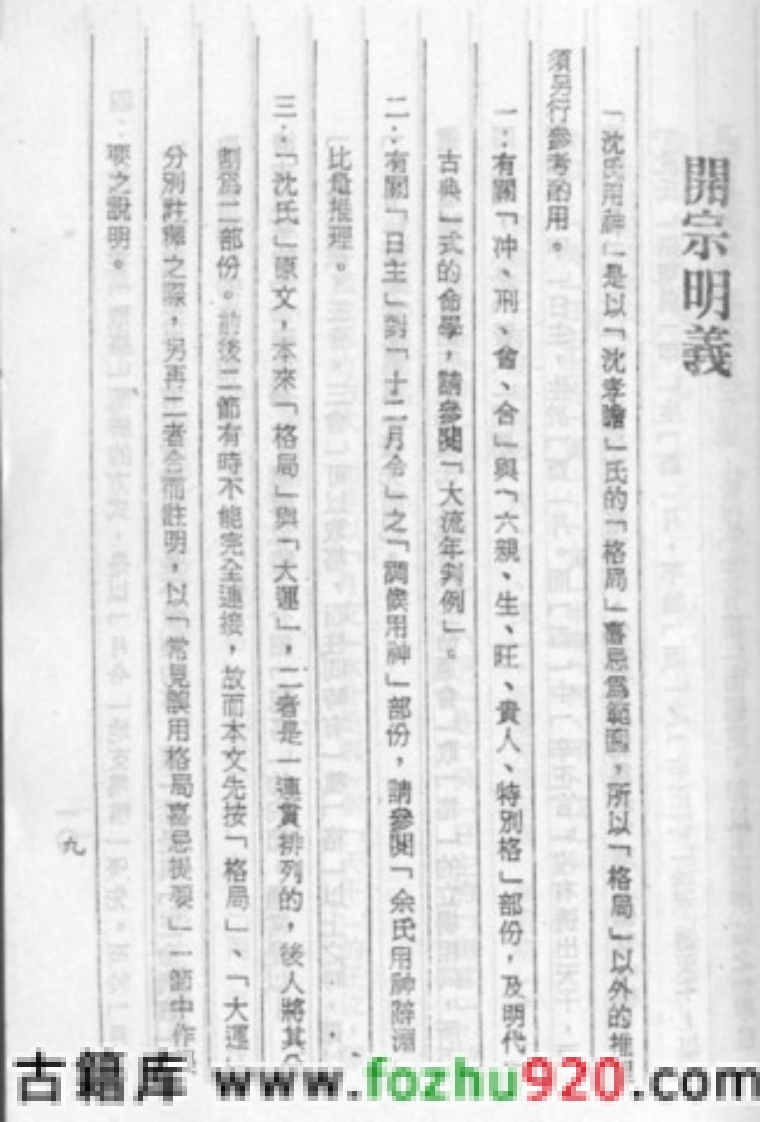 開宗明義
「沈氏用神」是以「沈孝瞻」氏的「格局」喜忌爲範圍，所以「格局」以外的推
須另行參考酌用。
一：有關「冲、刑、會、合」與「六親、生、旺、貴人、特別格」部份，及明代
古典」式的命學，請參閱「大流年判例」。
二：有關「日主」對「十二月令」之「調候用神」部份，請參閱「余氏用神辭淵
比量推理。
三：「沈氏」原文，本來「格局」與「大運」，二者是一連貫排列的，後人將其分
割爲二部份。前後二節有時不能完全連接，故而本文先按「格局」、「大運」
分別註釋之際，另再二者合而註明，以「常見誤用格局喜忌提要」一節中作
要之說明。
九
古籍库 www.fozhu920.com